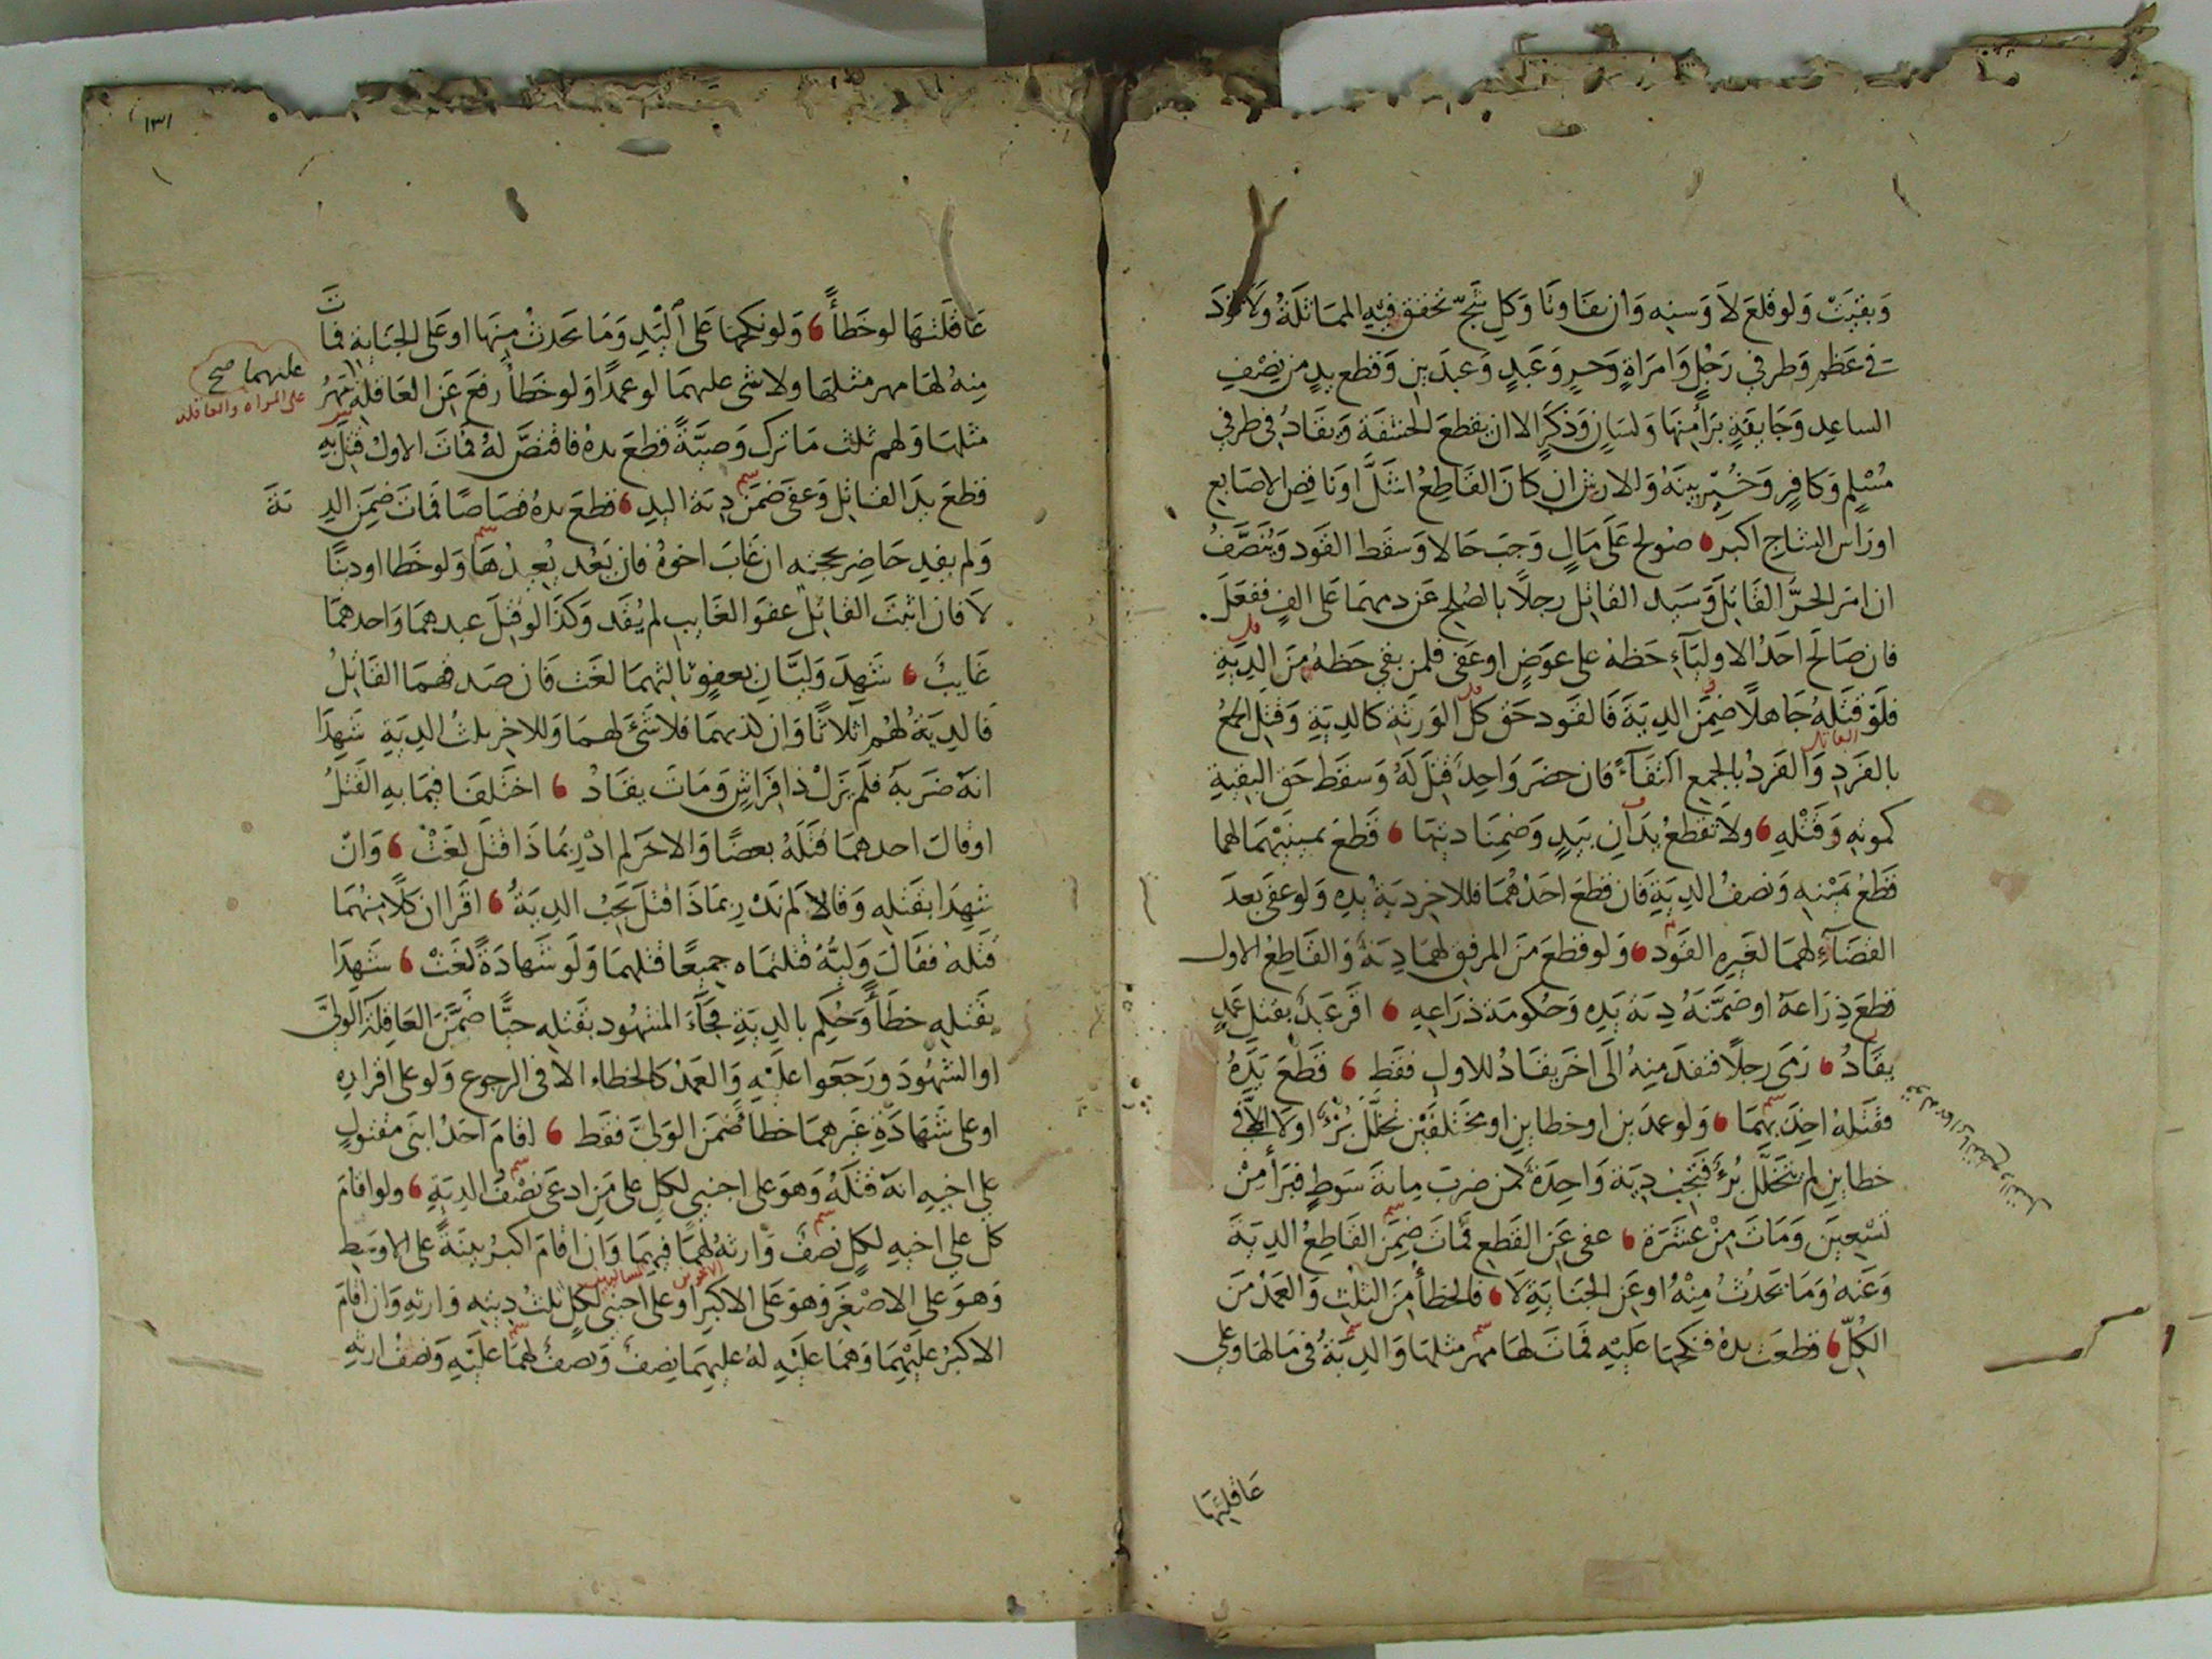 وَبقيَتْ وَلو قلعَ لاَ وَسنه وَان تفاوتا وَكل شَجّ تحقق فيهِ المماثلة وَلاَ قود
في عَظم وَطرفي رَجُلٍ وَامرَاةٍ وَحرٍ وَعَبدٍ وَعبدَين وَقطع يدٍ من نِصْفِ
الساعِدِ وَجَائفةٍ بَرأ منهَا وَلسَانٍ وَذكرٍ الا ان يقطعَ الحشفَة وَيقادُ في طرفي
مُسْلِمٍ وَكافِرٍ وَخُيِّر بينَهُ وَالارش ان كانَ القاطِعُ اشلَّ اوناقِص الاصَابع
اورَاس الشاج اكبر صُولح عَلى مَالٍ وَجبَ حَالا وَسقط القود وَيُنصَّفُ
ان امَر الحرُّ القَاتِلُ وَسَيد القاتِل رجلاً بالصُلح عَن دمهمَا عَلى الفٍ ففعَلَ
فان صَالحَ احَدُ الاوليَآءِ حَظهُ على عوَضٍ اوعَفى فلمن بقي حَظهُ مِنَ الديَةِ
فلوْ قتلهُ جَاهلاً ضمِنَ الديَةَ فالقود حَق كل الوَرثةِ كالديَةِ وَقتل الجمعُ
بالفَردِ وَالفردُ بالجمع اكتفاءً فان حضرَ وَاحِدٌ قتِلَ لهُ وَسقط حَق البقيةِ
كموتهِ وَقتْلِهِ ولا تقطعُ يدَانِ بيَدٍ وَضمِنَا ديتهَا قطعَ يمينيْهمَا لهما
قطعُ يَمينهِ وَنصفُ الديَةِ فان قطعَ احَدُهُمَا فللاخر ديَةُ يدِهِ وَلوعفى بعدَ
القضَآءِ لهمَا لغيرهِ القوَد وَلوقطعَ منَ المرفق لهمَا ديَةٌ وَالقاطِعُ الاول
قطعَ ذِرَاعهُ اوضمَّنَهُ ديَةَ يَدِهِ وَحُكومَة ذرَاعهِ اقرَ عَبدٌ بقتل عَمدٍ
يقادُ رَمَى رجلاً فنفدَ منهُ الى اخرَ يقادُ للاول فقط قطعَ يَدَهُ
فقتلهُ اخِذَ بهمَا وَلوعمدَين اوخطاين اومختلفَيْن تخللَ بُرْءٌ اولاَ الا في
خطاين لم يتخلل بُرْءٌ فتجبُ ديَة وَاحِدَة كمن ضربَ مائة سَوطٍ فبَرأ مِنْ
تسْعِينَ وَمَاتَ مِنْ عشرَة عفى عَن القطع فمَاتَ ضمِنَ القاطِعُ الديَةَ
وَعَنهُ وَمَا يحدُثُ مِنْهُ اوعَن الجنَايَةِ لاَ فالخطأ منَ الثلث وَالعَمدُ منَ
الكلّ قطعَت يدهُ فنكحَها عَليهِ فماتَ لهَا مهر مثلهَا وَالديَةُ في مَالهَا وعلى
عَاقلتهَا
١٣١
عَاقلتهَا لوخطأً وَلونكحهَا عَلى اليَدِ وَمَا يحدثُ منهَا اوعَلى الجنَايَةِ فمَاتَ
منهُ لهَا مهر مثلهَا ولاشى عليهمَا لوعمدًا وَلوخَطأً رفعَ عَن العَاقلةِ مَهرُ
عليهما صح
على المراه والعاقله
مثلهَا وَلهم ثلث مَا ترك وَصيَّةً قطعَ يدهُ فاقتصَّ لهُ فمَاتَ الاول قتل بهِ
قطعَ يدَ القاتِل وَعفى ضمنَ ديَة اليدِ قطعَ يدهُ قصَاصًا فمَاتَ ضمِنَ الديَةَ
وَلم يقِد حَاضِر بحجته ان غابَ اخوُهُ فان يَعُد يُعِدْهَا وَلوخَطا اودينًا
لاَ فان اثبتَ القاتل عفو الغايب لم يُقَد وَكذا لوقتلَ عبدهمَا وَاحدهمَا
غايبٌ شهِدَ وَليَّانِ بعفو ثالثهمَا لغت فان صَدقهمَا القاتِلُ
فالديَةُ لهُم اثلاثًا وَان كذبهمَا فلاشَىْ لهمَا وَللاخر ثلثُ الديَةِ شهِدَا
انهُ ضَربهُ فلم يَزلْ ذا فراشٍ وَمَاتَ يقادُ اختلفا فيمَا بهِ القتلُ
اوقالَ احدهمَا قتلَهُ بعصًا وَالاخرَ لم ادْرِ بمَاذا قتلَ لغَتْ وَانْ
شهِدَا بقتلِهِ وَقالا لم ندْرِ بمَاذا قتلَ تجِبُ الديَةُ اقرَا ان كلاً منهُمَا
قتلهُ فقالَ وَليُّهُ قتلتمَاه جميعًا قتلهمَا وَلوشهَادَةً لغَتْ شهِدَا
بقتلِهِ خطأً وَحُكِمَ بالديَةِ فجآءَ المشهُود بقتلهِ حيًّا ضمَّنَ العَاقلةُ الوَليَّ
اوالشهُودَ وَرَجَعوا عَليْهِ وَالعَمدُ كالخطاء الا في الرجوع وَلوعلى اقرارِهِ
اوعلى شَهَادَةِ غيرهمَا خطأً ضمنَ الوَليَّ فقط اقامَ احَدُ ابني مقتولٍ
على اخيهِ انهُ قتلهُ وَهوَ على اجنبي لكلٍ على مَن ادعى نصفُ الديَةِ ولو اقامَ
كل على اخيهِ لكلٍ نصفٌ وَارثهُ لهمَا فيهمَا وَان اقامَ اكبرُ بينةً على الاوسَط
وَهوَ على الاصْغَر وَهوَ على الاكبر اوعلى اجنبي لكلٍ ثلثُ ديَتِهِ وَارثهِ وَان اقامَ
الاكبرُ عَليْهمَا وَهمَا عَليْهِ لهُ عليهمَا نِصفٌ وَنصفٌ لهمَا عَليْهِ وَنصفُ ارثهِ